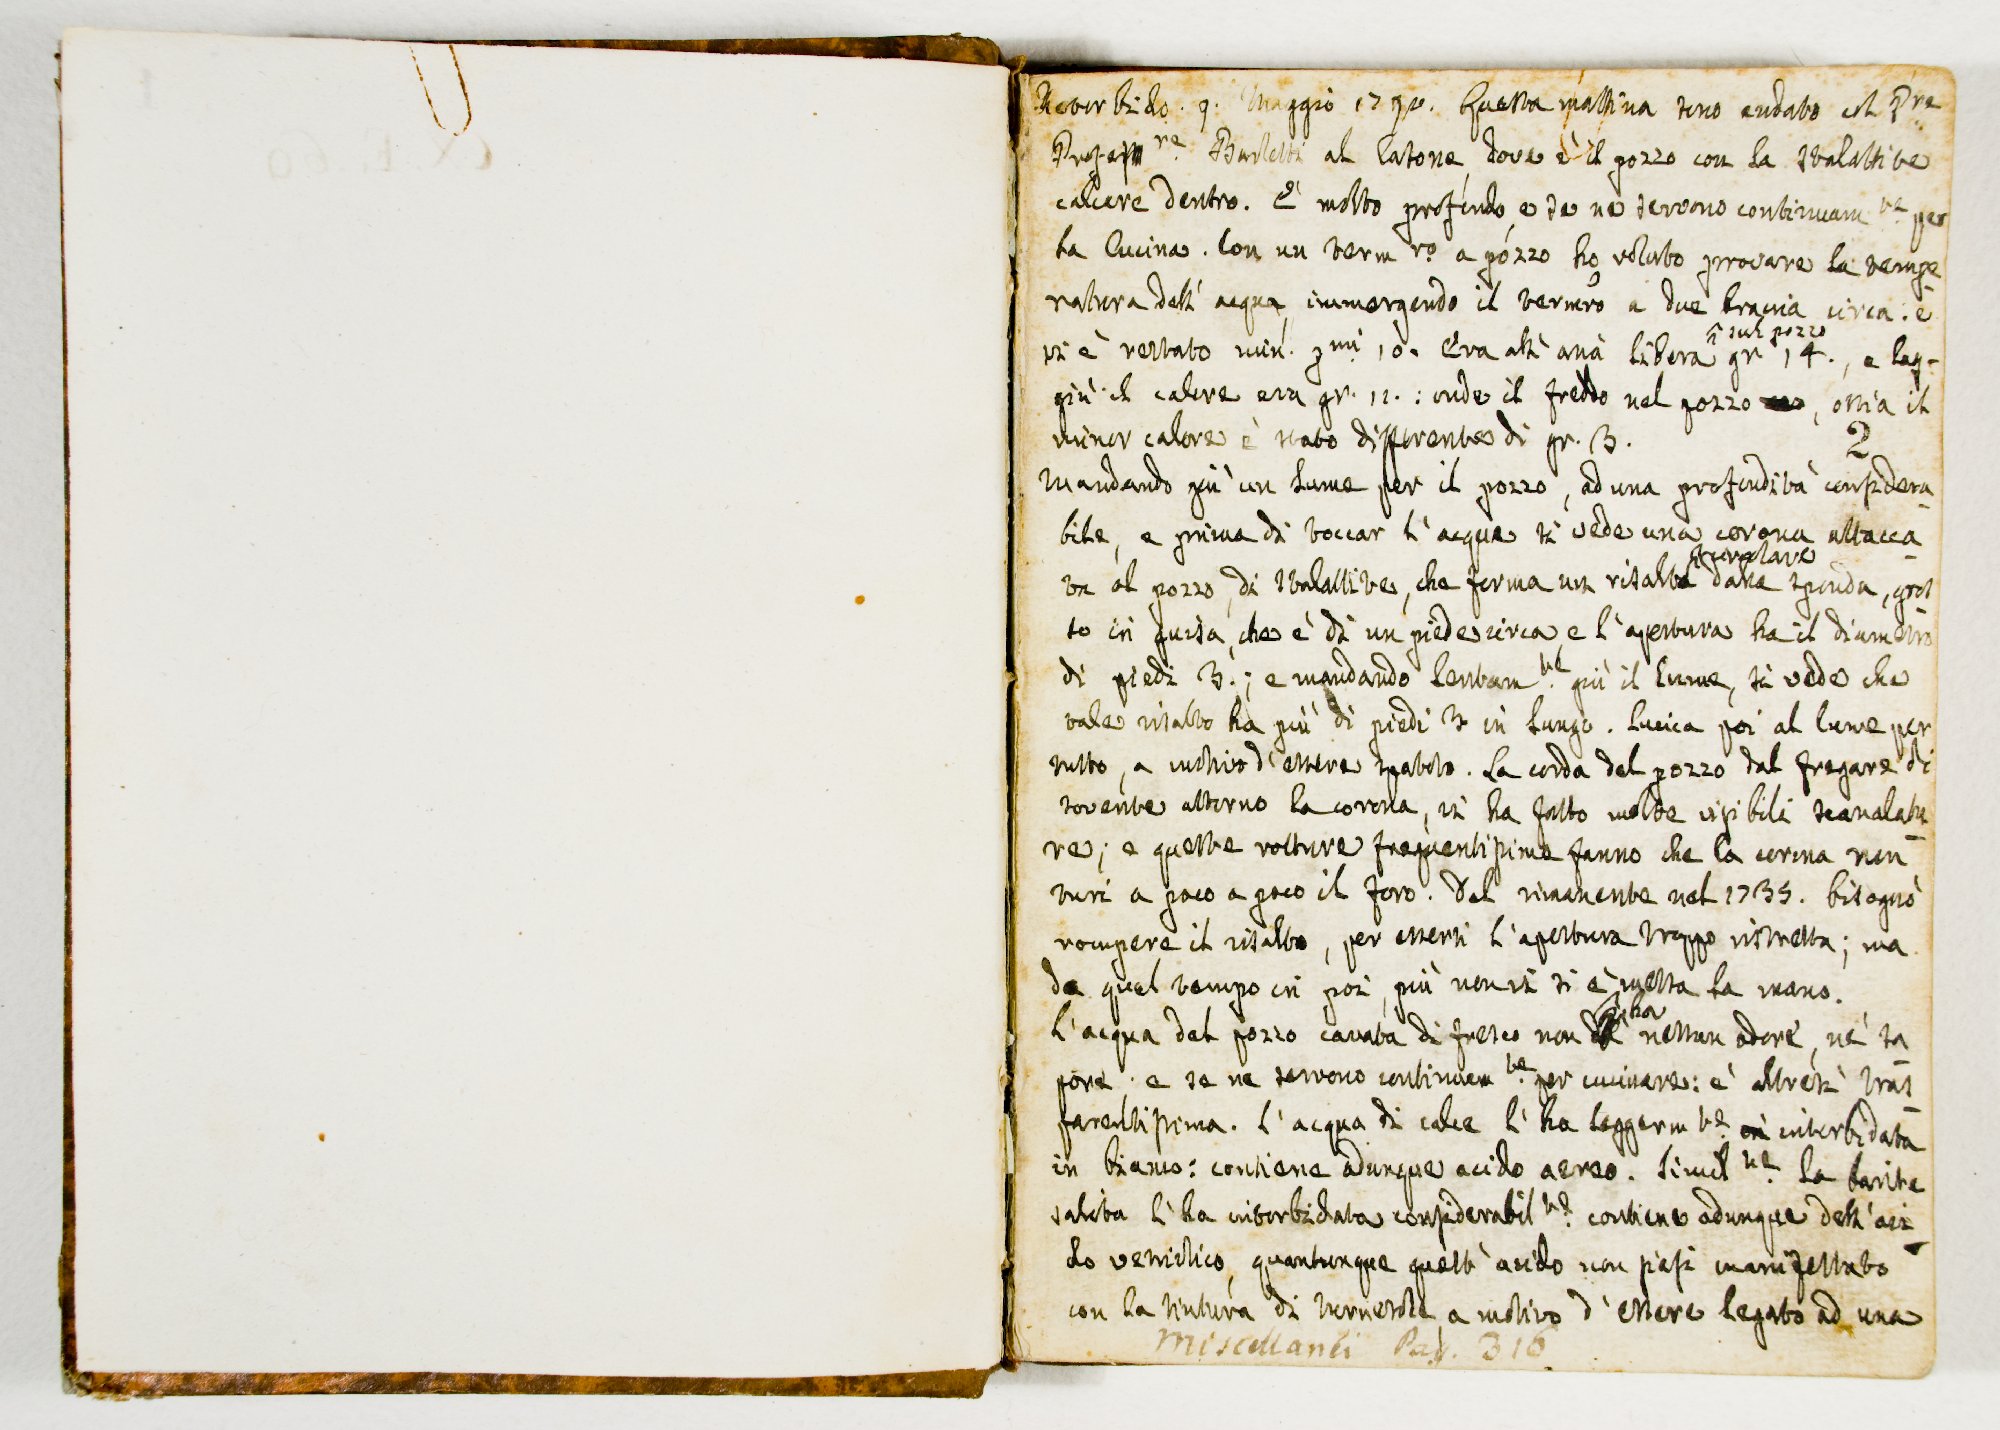 Retorbido. 9. Maggio 179. Questa mattina sono andato col Pre
Professre. Barletti al Catone, dove è il pozzo con la stalattite
calcare dentro. È molto profondo, e se ne servono continuamte. per
la Cucina. Con un term.ro a pozzo ho voluto provare la tempe
ratura dell' acqua, immergendo il termro a due braccia circa. e
vi è restato min. pmi 10. Era all' aria libera sul pozzo gr. 14., e lag-
giù il calore era gr. 12.: onde il freddo nel pozzo, ossia il
minor calore è stato differente di gr. 3. 2
Mandando giù un lume per il pozzo, ad una profondità considera
bile, e prima di toccar l' acqua si vede una corona attacca
ta al pozzo, di stalattite, che forma un risalto circolare dalle sponda, gros
so in guisa, che è di un piede circa, e l' apertura ha il diametro
di piedi 3.; e mandando lentamte. giù il lume, si vede che
tale risalto ha più di piedi 3 in lungo. Luccica poi al lume per
tutto, a motivo d' essere spatoso. La corda del pozzo dal fregare di
sovente attorno la corona, vi ha fatto molte visibili scanalatu
re; e queste rotture frequentissime fanno che la corona non
turi a poco a poco il foro. Del rimanente nel 1735. bisognò
rompere il risalto, per essersi l' apertura troppo ristretta; ma
da quel tempo in poi, più non vi si è messa la mano.
L' acqua del pozzo cavata di fresco non ha nessun odore, nè sa
pore. e se ne servono continuamte. per cucinare: è altresì tras
parentissima. L' acqua di calce l' ha leggermte. interbidata
in bianco: contiene adunque acido aereo. Similte. la barite
salita l' ha intorbidata considerabilte. contiene adunque dell' aci
do vetriolico, quantunque quest' acido non siasi manifestato
con la tintura di tornesole, a motivo d' essere legato ad una
Miscellanei Pag. 316